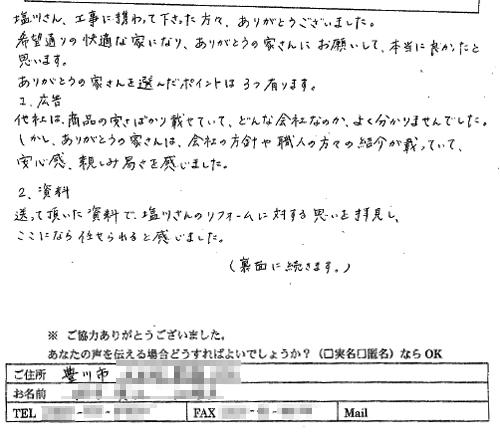 塩川さん、工事に携わって下さった方々、ありがとうございました。
希望通りの快適な家になり、ありがとうの家さんにお願いして、本当に良かったと
思います。
ありがとうの家さんを選んだポイントは3つ有ります。
1、広告
他社は、商品の安さばかり載せていて、どんな会社なのか、よく分かりませんでした。
しかし、ありがとうの家さんは、会社の方針や職人の方々の紹介が載っていて、
安心感、親しみ易さを感じました。
2、資料
送って頂いた資料で、塩川さんのリフォームに対する思いを拝見し、
ここになら任せられると感じました。
(裏面に続きます。)
※ ご協力ありがとうございました。
あなたの声を伝える場合どうすればよいでしょうか？(□実名□匿名)ならOK
ご住所 豊川市
お名前
TEL FAX Mail